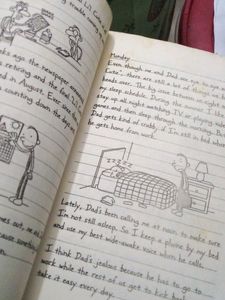 Li'l C
making trouble
ks ago the newspaper annou
s retiring and the final "Li'l
in August. Ever sin
counting down the
mes out, me
cause somethin
Monday
Even though me and Dad
Cute", there are still a lot of things
The big issue between us right
my sleep schedule. During the
stay up all night watching TV or playing
games and then sleep through the morning. But
Dad gets kind of crabby if I'm still in bed whe
he gets home from work.
Lately, Dad's been calling me at noon to make sure
I'm not still asleep. So I keep a phone by my bed
and use my best wide-awake voice when he calls.
I think Dad's jealous because he has to go to
work while the rest of us get to kick
take it easy every day.